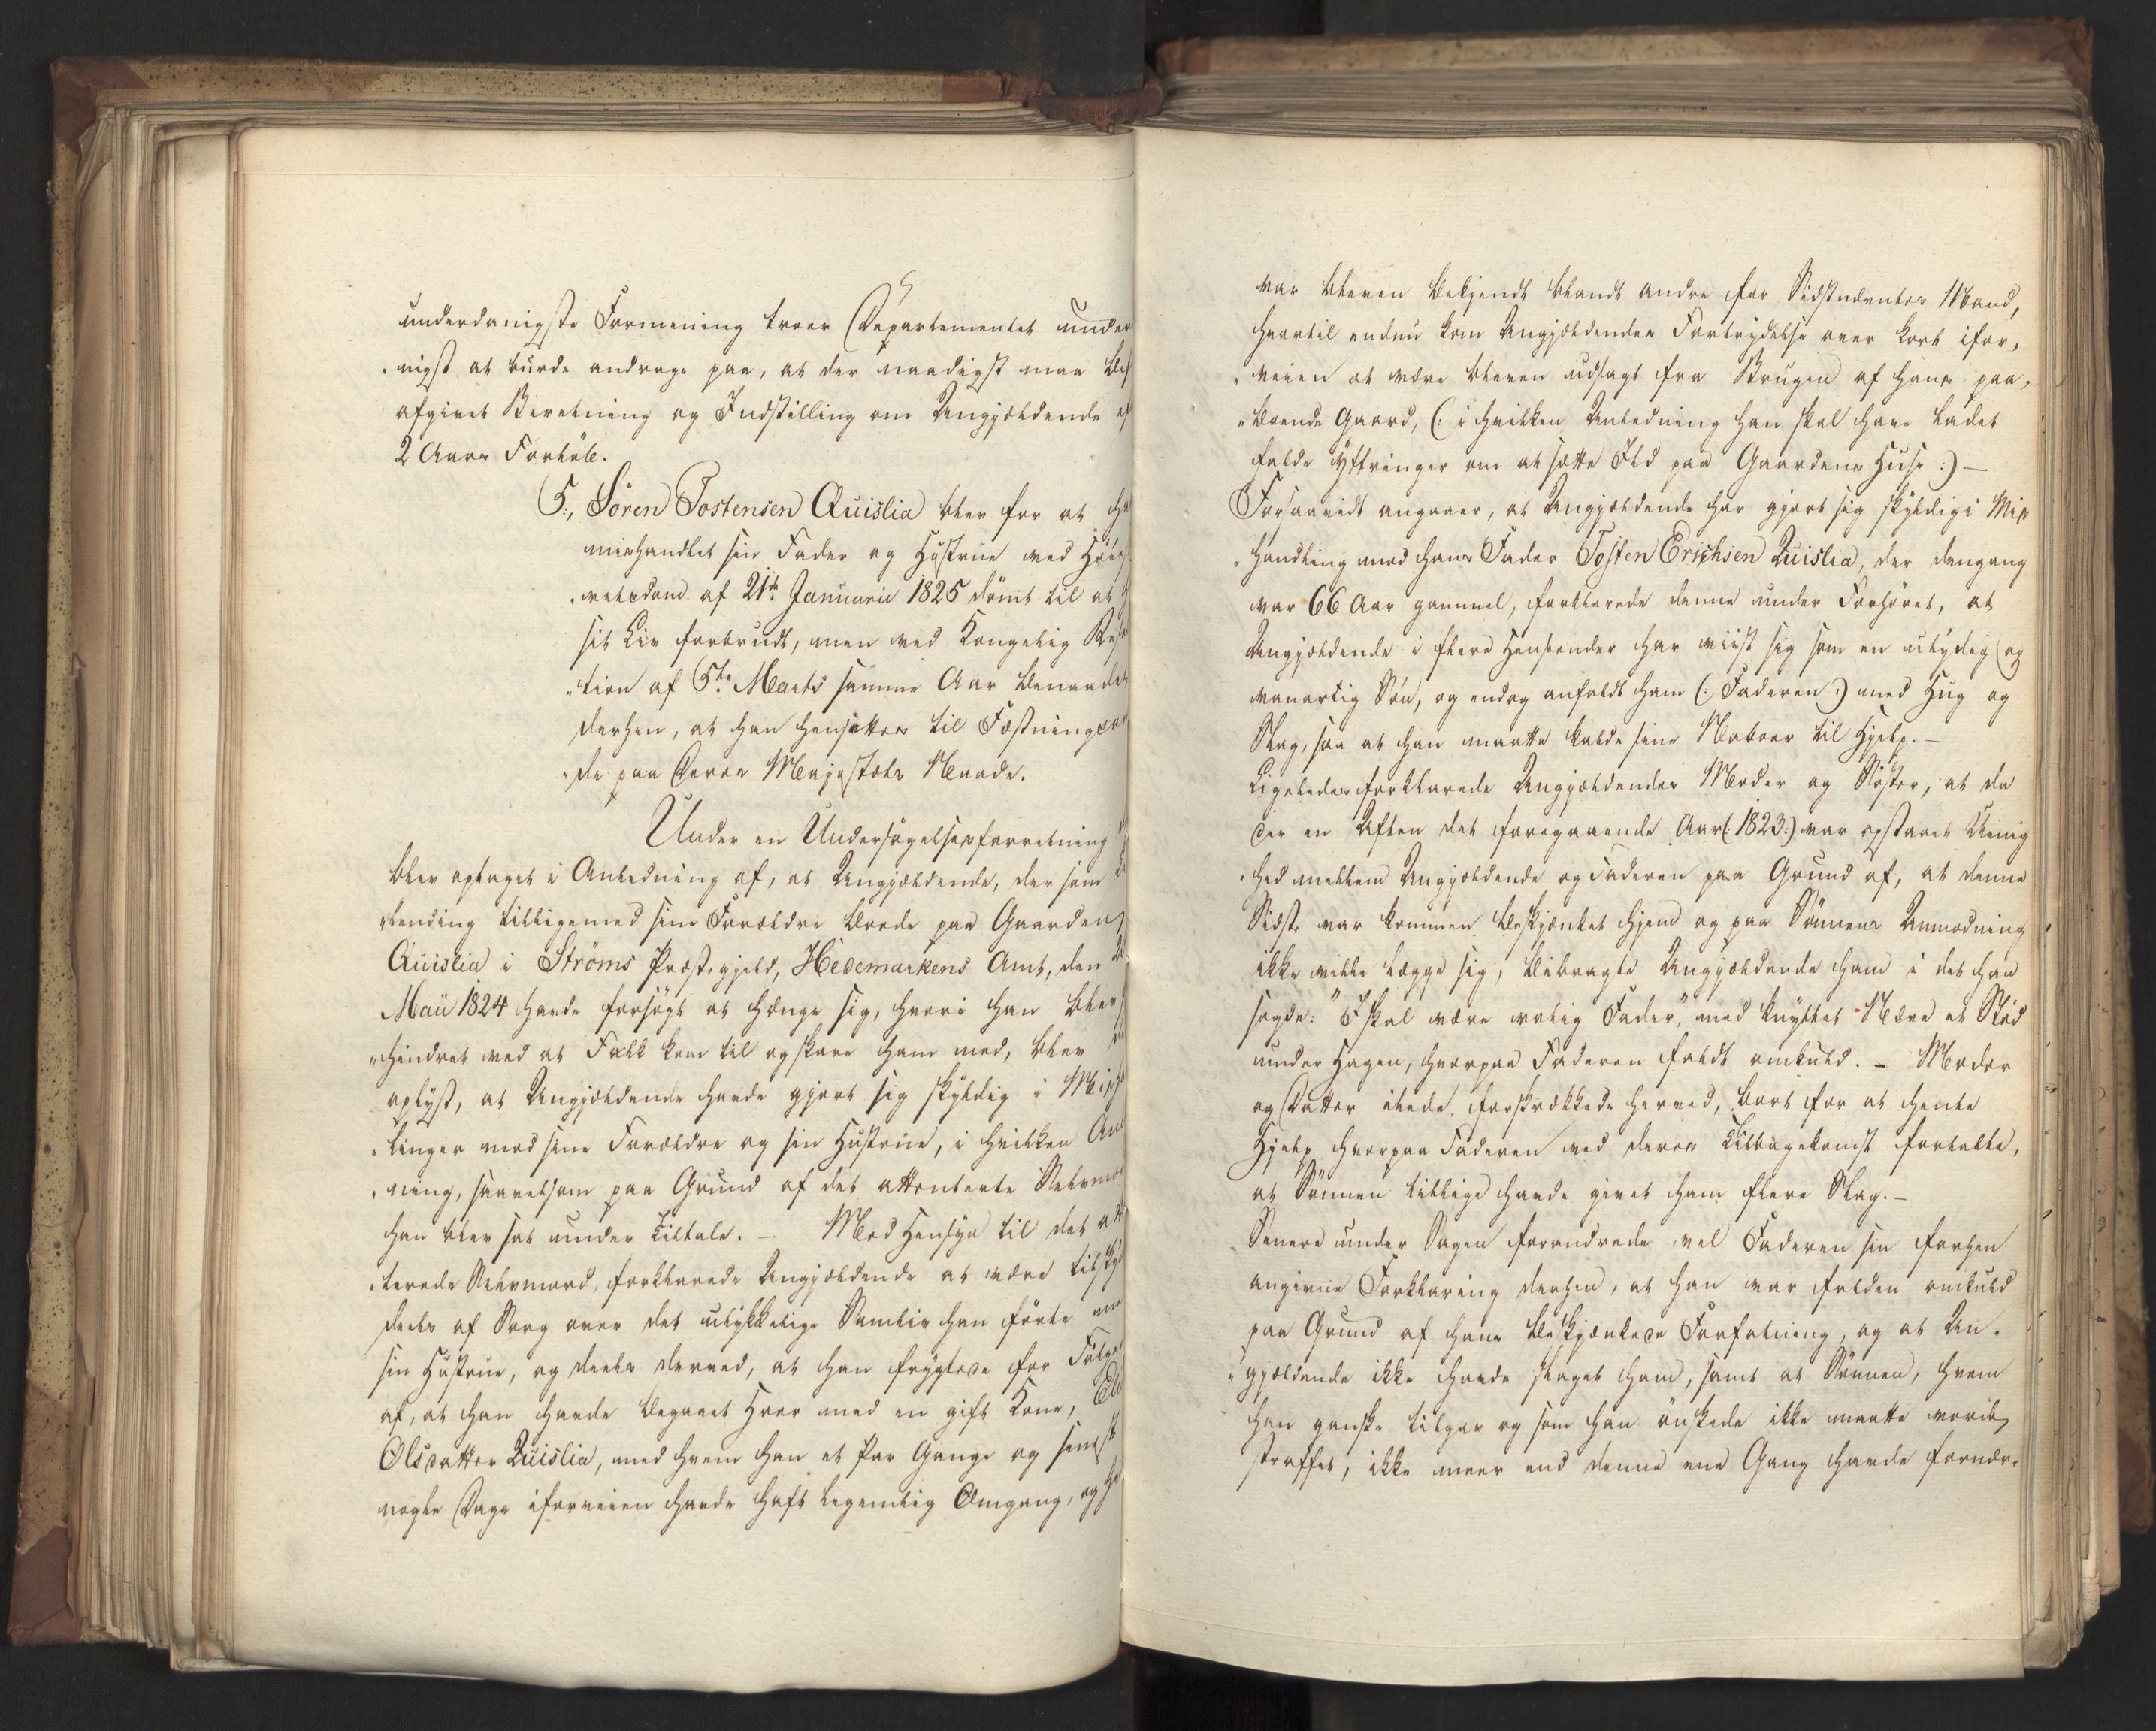 underdanigste Formening troer Departementet under
„nigst at burde andrage paa, at der naadigst maa
afgivet Beretning og Indstilling om Angjældende
2 Aars Forløb.
5., Sören Tostensen Quislia blev for at
mishandlet sin Fader og Hustrue ved
„retsdom af 21de Januarii 1825 dömt til at
sit Liv forbrudt, men ved Kongelig
„tion af 5te Marts samme Aar benaadet
derhen, at han hensættes til
„de paa Deres Majestæts Naade.
Under en Undersögelsesforretning
blev optaget i Anledning af, at Angjældende, der som
„lending tilligemed sine Forældre boede paa Gaarden
Quislia i Ströms Præstegjeld, Hedemarkens Amt, den
Maii 1824 havde forsögt at hænge sig, hvori han blev
„hindret ved at Folk kom til og skare ham ned, blev
oplyst, at Angjældende havde gjort sig skyldig i
„linger mod sine Forældre og sin Hustrue, i hvilken
„ning, saavelsom paa Grund af det attenterte
han blev sat under Tiltale. – Med Hensyn til det
„terede Selvmord, forklarede Angjældende at være
deels af Sorg over det ulykkelige Samliv han förte
sin Hustrue, og deels derved, at han frygtede for
af, at han havde begaaet Hoer med en gift Kone,
Olsdatter Quislia, med hvem han et Par Gange og
nogle Dage iforveien havde haft legemlig Omgang, og
var bleven bekjendt blandt andre for Sidstnævntes Mand,
hvortil endnu kom Angjældendes Fortrydelse over kort ifor„
„veien at være bleven udsagt fra Brugen af hans paa„
„boende Gaard, (: i hvilken Anledning han skal have ladet
falde Yttringer om at sætte Ild paa Gaardens Huse :) –
Forsaavidt angaaer, at Angjældende har gjort sig skyldig i Mis
„handling mod hans Fader Tosten Erichsen Quislia, der dengang
var 66 Aar gammel, forklarede denne under Forhöret, at
Angjældende i flere Henseender har viist sig som en ulydig og
vanartig Sön, og endog anfaldt ham (: Faderen :) med Hug og
Slag, saa at han maatte kalde sine Naboer til Hjelp. –
Ligeledes forklarede Angjældendes Moder og Söster, at da
der en Aften det foregaaende Aar (: 1823 :) var opstaaet Uenig
„hed mellem Angjældende og Faderen paa Grund af, at denne
Sidste var kommen beskjænket hjem og paa Sönnens Anmodning
ikke vilde lægge sig, bibragte Angjældende ham i det han
sagde: "I skal være rolig Fader", med knyttet Næve et Stöd
under Hagen, hvorpaa Faderen faldt omkuld. – Moder
og Datter ilede, forskrækkede herved, bort for at hente
Hjelp hvorpaa Faderen ved deres Tilbagekomst fortalte,
at Sönnen tillige havde givet ham flere Slag. –
Senere under Sagen forandrede vel Faderen sin forhen
angivne Forklaring derhen, at han var falden omkuld
paa Grund af hans beskjænkede Forfatning, og at An„
„gjældende ikke havde slaget ham, samt at Sönnen, hvem
han ganske tilgav og som han önskede ikke maatte vorde
straffet, ikke meer end denne ene Gang havde fornær„